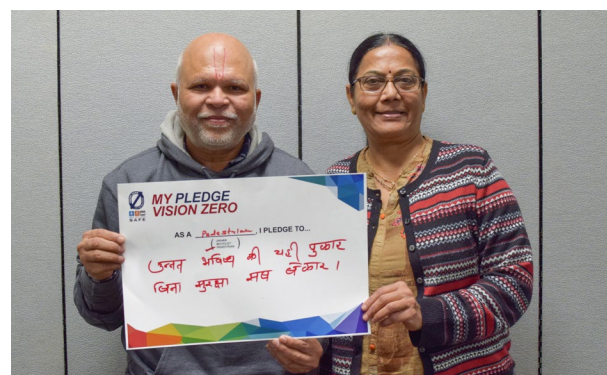 MY PLEDGE
VISION ZERO
SAFE
AS A Pedestrian, I PLEDGE TO...
उन्नत भविष्य की यही पुकार
बिना सुरक्षा सब बेकार।